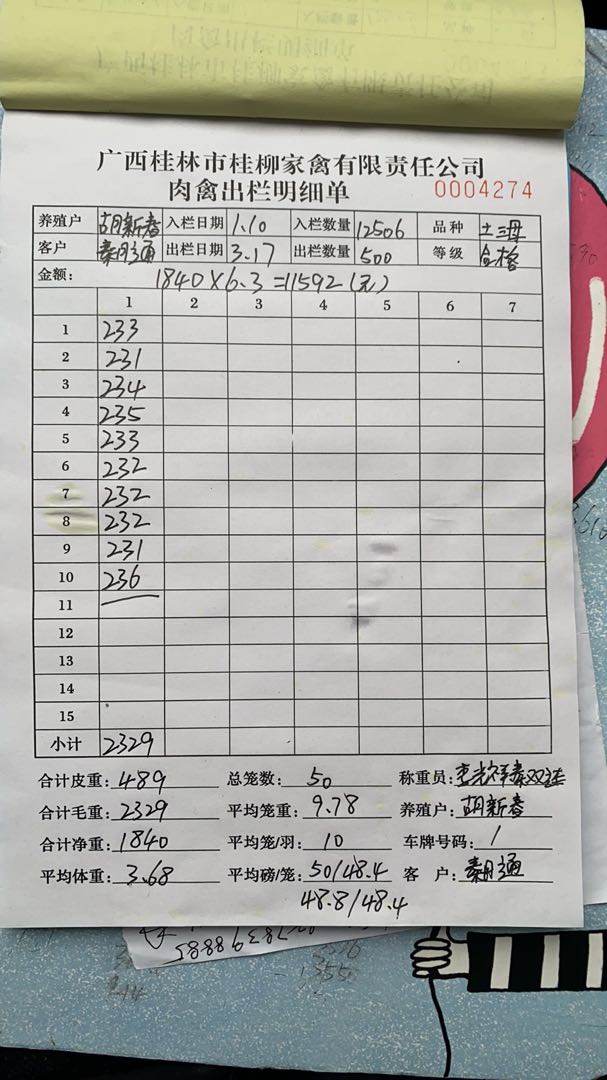 广西桂林市桂柳家禽有限责任公司
肉禽出栏明细单 0004274
养殖户 胡新春 入栏日期 1.10 入栏数量 12506 品种 土三母
客户 秦月通 出栏日期 3.17 出栏数量 500 等级 合格
金额: 1840×6.3=11592(元)
1 2 3 4 5 6 7
1 233
2 231
3 234
4 235
5 233
6 232
7 232
8 232
9 231
10 236
11
12
13
14
15
小计 2329
合计皮重: 489 总笼数: 50 称重员:
合计毛重: 2329 平均笼重: 9.78 养殖户: 胡新春
合计净重: 1840 平均笼/羽: 10 车牌号码: 1
平均体重: 3.68 平均磅/笼: 50/48.4 客户: 秦月通
48.8/48.4